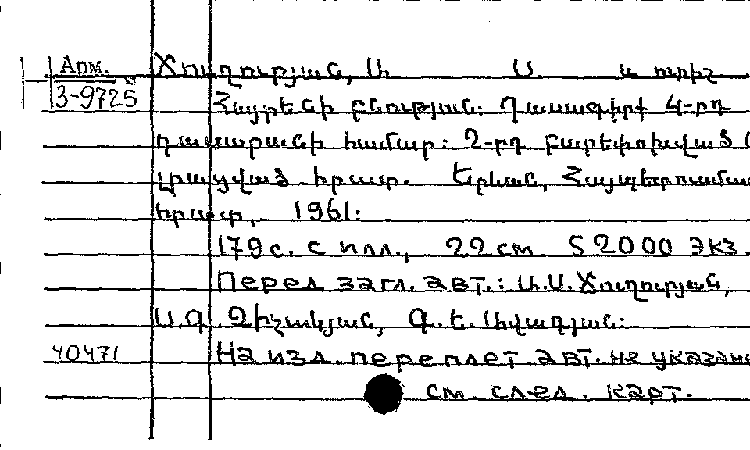 Арм. Ճուղուրյան, Ա. Ս. և ուրիշ
3-9725 Հայրենի բնություն: Դասագիրք 4-րդ
դասարանի համար: 2-րդ բարեփոխված
լրացված հրատ. Երևան, Հայպետուսման
հրատ., 1961:
179 с. с илл., 22 см 52000 экз.
Перед загл. авт.: Ա.Ս. Ճուղուրյան,
Ս.Գ. Զիշանկյան, Գ.Ե. Ավագյան:
40471 На изд. переплет авт. не указан
см. след. карт.